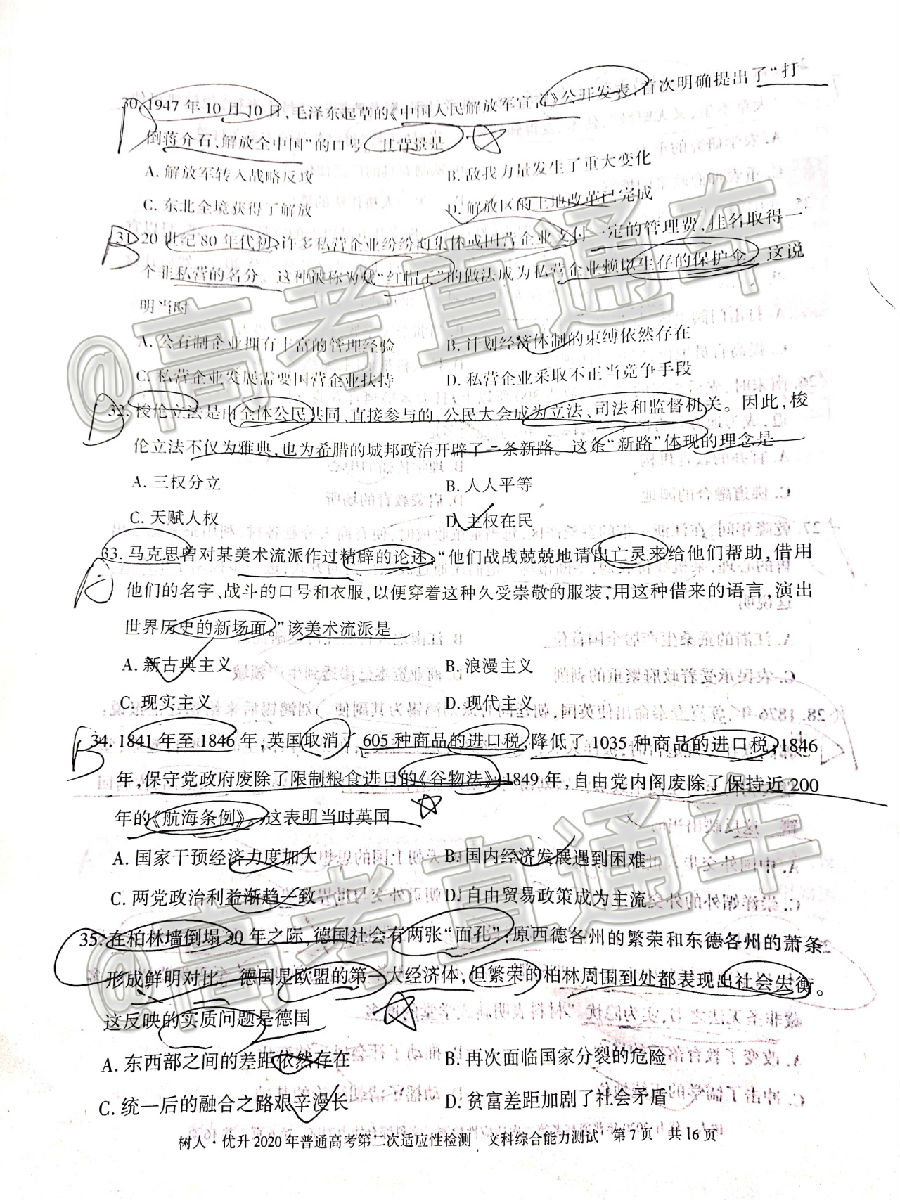 30. 1947 年 10 月 10 日,毛泽东起草的《中国人民解放军宣言》公开发表,首次明确提出了“打
倒蒋介石,解放全中国”的口号,其背景是
A. 解放军转入战略反攻 B. 敌我力量发生了重大变化
C. 东北全境获得了解放 D. 解放区的土地改革已完成
31. 20 世纪 80 年代初,许多私营企业纷纷向集体或国营企业交付一定的管理费,挂名取得一
个非私营的名分。这种被称为戴“红帽子”的做法成为私营企业赖以生存的保护伞,这说
明当时
A. 公有制企业拥有丰富的管理经验 B. 计划经济体制的束缚依然存在
C. 私营企业发展需要国营企业扶持 D. 私营企业采取不正当竞争手段
32. 梭伦立法是由全体公民共同、直接参与的,公民大会成为立法、司法和监督机关。因此,梭
伦立法不仅为雅典,也为希腊的城邦政治开辟了一条新路。这条“新路”体现的理念是
A. 三权分立 B. 人人平等
C. 天赋人权 D. 主权在民
33. 马克思曾对某美术流派作过精辟的论述:“他们战战兢兢地请出亡灵来给他们帮助,借用
他们的名字、战斗的口号和衣服,以便穿着这种久受崇敬的服装,用这种借来的语言,演出
世界历史的新场面。”该美术流派是
A. 新古典主义 B. 浪漫主义
C. 现实主义 D. 现代主义
34. 1841 年至 1846 年,英国取消了 605 种商品的进口税,降低了 1035 种商品的进口税;1846
年,保守党政府废除了限制粮食进口的《谷物法》;1849 年,自由党内阁废除了保持近 200
年的《航海条例》。这表明当时英国
A. 国家干预经济力度加大 B. 国内经济发展遇到困难
C. 两党政治利益渐趋一致 D. 自由贸易政策成为主流
35. 在柏林墙倒塌 30 年之际,德国社会有两张“面孔”:原西德各州的繁荣和东德各州的萧条
形成鲜明对比。德国是欧盟的第一大经济体,但繁荣的柏林周围到处都表现出社会失衡。
这反映的实质问题是德国
A. 东西部之间的差距依然存在 B. 再次面临国家分裂的危险
C. 统一后的融合之路艰辛漫长 D. 贫富差距加剧了社会矛盾
树人·优升 2020 年普通高考第二次适应性检测 文科综合能力测试 第 7 页 共 16 页
@高考直通车
@高考直通车